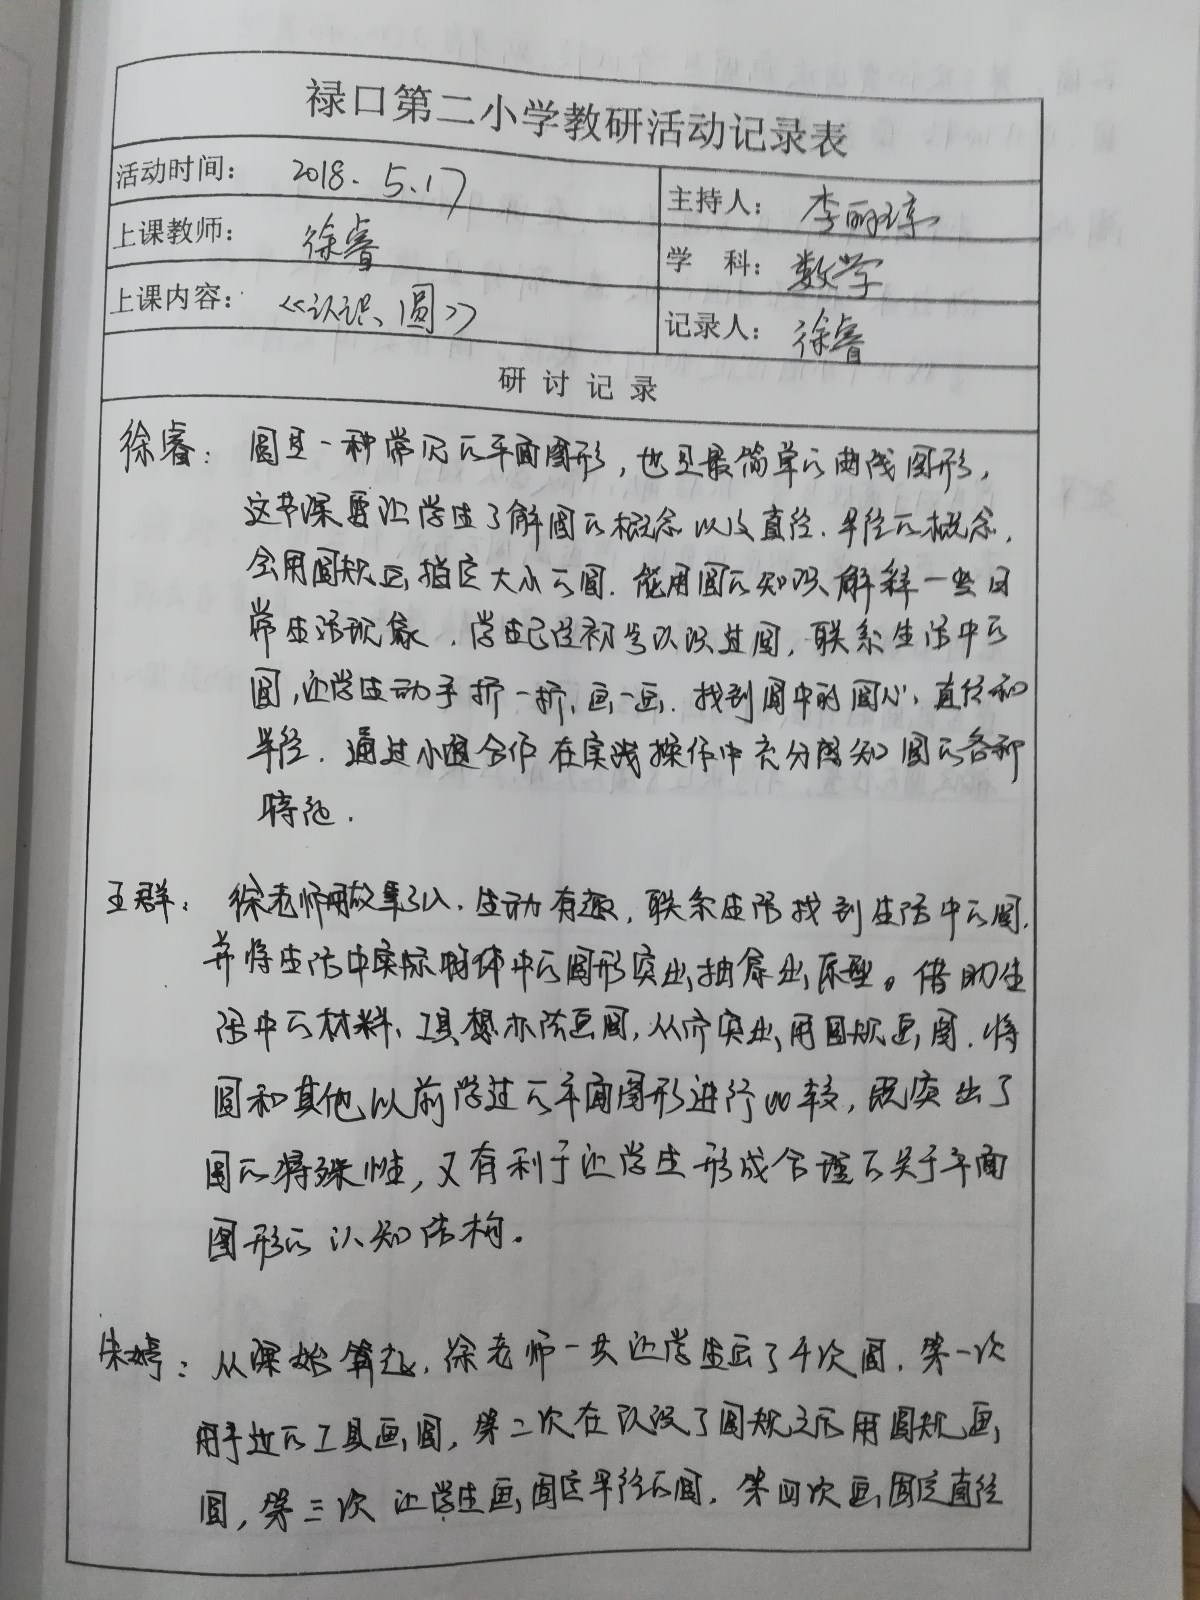 禄口第二小学教研活动记录表
活动时间： 2018.5.17 主持人： 李丽琼
上课教师： 徐睿 学 科： 数学
上课内容： 《认识圆》 记录人： 徐睿
研 讨 记 录
徐睿： 圆是一种常见的平面图形，也是最简单的曲线图形，
这节课要让学生了解圆的概念以及直径、半径的概念，
会用圆规画指定大小的圆．能用圆的知识解释一些日
常生活现象．学生已经初步认识过圆，联系生活中的
圆，让学生动手折一折，画一画．找到圆中的圆心，直径和
半径．通过小组合作在实践操作中充分感知圆的各种
特征．
王群： 徐老师用故事引入．生动有趣，联系生活找到生活中的圆．
并将生活中实际物体中的圆形突出，抽象出原型。借助生
活中的材料、工具想办法画圆，从而突出用圆规画圆．将
圆和其他以前学过的平面图形进行比较，既突出了
圆的特殊性，又有利于让学生形成合理的关于平面
图形的认知结构。
朱婷： 从课始算起，徐老师一共让学生画了4次圆．第一次
用手边的工具画圆，第二次在认识了圆规之后用圆规画
圆，第三次让学生画固定半径的圆．第四次画固定直径